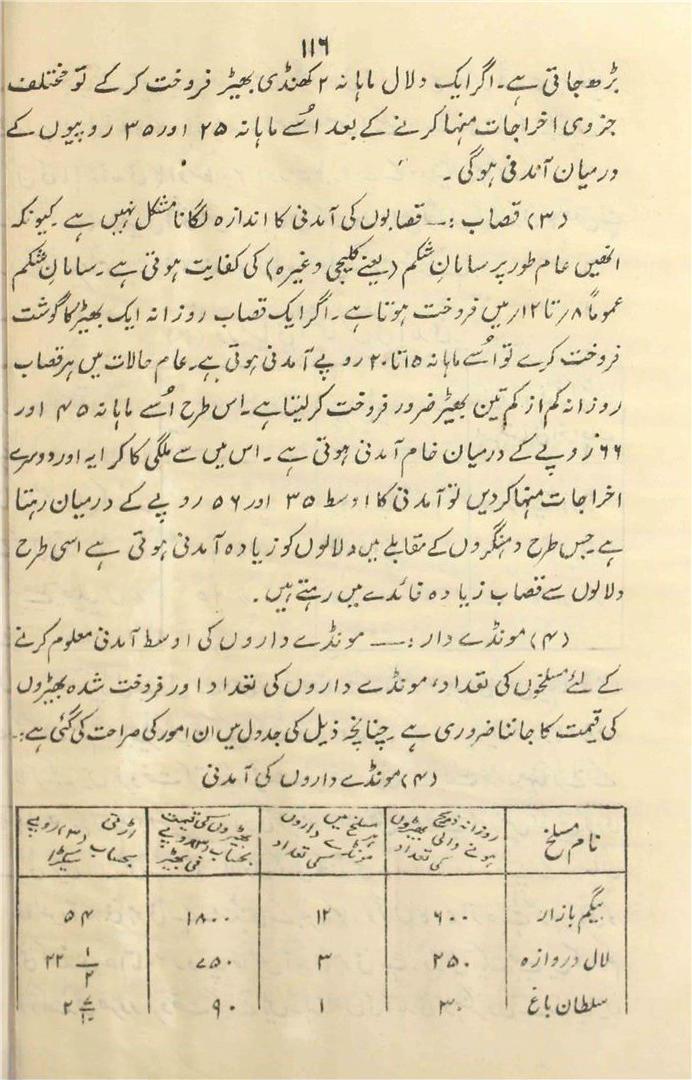 ۱۱۶
بڑھ جاتی ہے۔ اگر ایک دلال ماہانہ ۲ کھنڈی بھیڑ فروخت کر کے تو مختلف
جزوی اخراجات منہا کرنے کے بعد اُسے ماہانہ ۲۵ اور ۳۵ روپیوں کے
درمیان آمدنی ہوگی۔
(۳) قصاب :۔ قصابوں کی آمدنی کا اندازہ لگانا مشکل نہیں ہے۔ کیونکہ
انھیں عام طور پر سامانِ شکم (یعنے کلیجی وغیرہ) کی کفایت ہوتی ہے۔ سامانِ شکم
عموماً ۸؍ تا ۱۲؍ میں فروخت ہوتا ہے۔ اگر ایک قصاب روزانہ ایک بھیڑ کا گوشت
فروخت کرے تو اُسے ماہانہ ۱۵ تا ۲۰ روپے آمدنی ہوتی ہے۔ عام حالات میں ہر قصاب
روزانہ کم از کم تین بھیڑ ضرور فروخت کر لیتا ہے۔ اس طرح اُسے ماہانہ ۴۵ اور
۶۶ روپے کے درمیان خام آمدنی ہوتی ہے۔ اس میں سے ملگی کا کرایہ اور دوسرے
اخراجات منہا کر دیں تو آمدنی کا اوسط ۳۵ اور ۵۶ روپے کے درمیان رہتا
ہے۔ جس طرح دہنگروں کے مقابلے میں دلالوں کو زیادہ آمدنی ہوتی ہے اسی طرح
دلالوں سے قصاب زیادہ فائدے میں رہتے ہیں۔
(۴) مونڈے دار :۔ مونڈے داروں کی اوسط آمدنی معلوم کرنے
کے لئے مسلخوں کی تعداد، مونڈے داروں کی تعداد اور فروخت شدہ بھیڑوں
کی قیمت کا جاننا ضروری ہے۔ چنانچہ ذیل کی جدول میں ان امور کی صراحت کی گئی ہے:۔
(۴) مونڈے داروں کی آمدنی
نام مسلخ روزانہ ذبح ہونے والی بھیڑوں کی تعداد مسلخ میں مونڈے داروں کی تعداد بھیڑوں کی قیمت بحساب ۳ روپے فی بھیڑ اڑتی بحساب (۳) روپے سیکڑا
بیگم بازار ۶۰۰ ۱۲ ۱۸۰۰ ۵۴
لال دروازہ ۲۵۰ ۳ ۷۵۰ ۲۲ ۱/۲
سلطان باغ ۳۰ ۱ ۹۰ ۲ ۷/۱۰